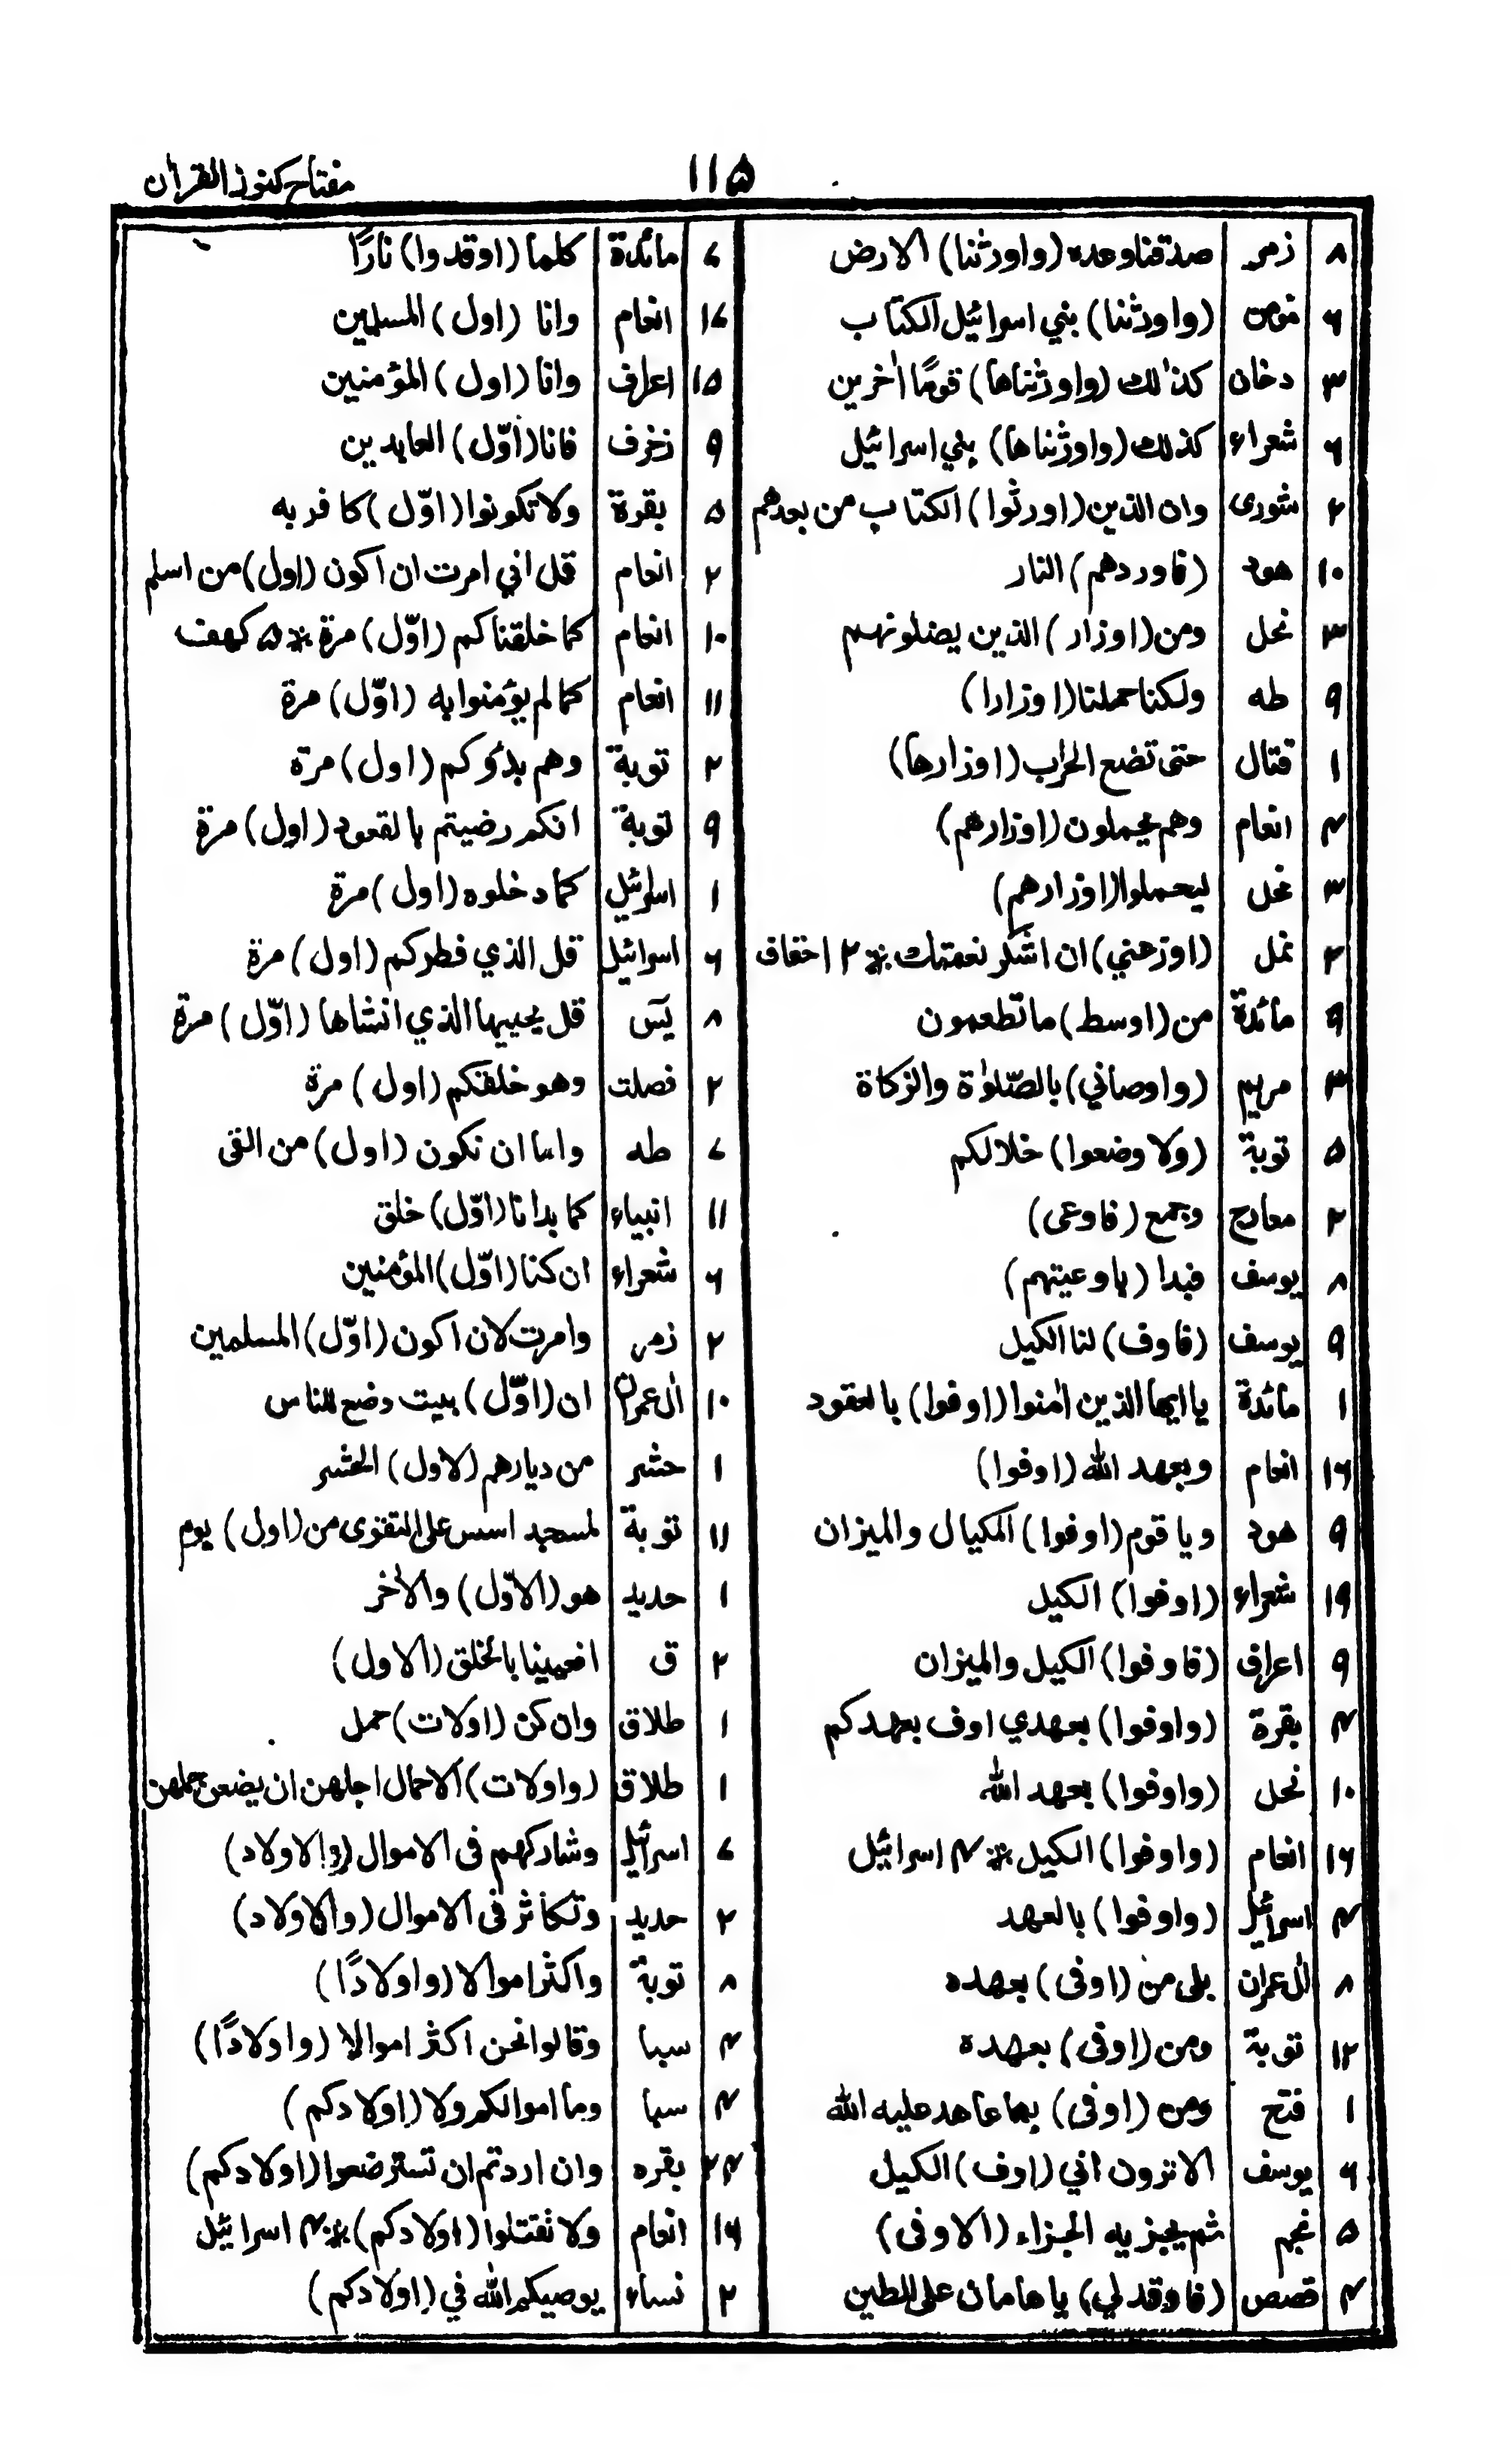 ١١۵
مفتاح كنوز القرأن
٨ زمر صدقنا وعده (واورثنا) الارض
۶ مؤمن (واورثنا) بني اسرائيل الكتاب
٣ دخان كذٰلك (واورثناها) قومًا اٰخرين
۶ شعراء كذلك (واورثناها) بني اسرائيل
٢ شورى وان الذين (اورثوا) الكتاب من بعدهم
١٠ هود (فاوردهم) النار
٣ نحل ومن (اوزار) الذين يضلونهم
٩ طه ولكنا حملنا (اوزارا)
١ قتال حتى تضع الحرب (اوزارها)
۴ انعام وهم يحملون (اوزارهم)
٣ نحل ليحملوا (اوزارهم)
٢ نمل (اوزعني) ان اشكر نعمتك * ٢ احقاف
٩ مائدة من (اوسط) ما تطعمون
٣ مريم (واوصاني) بالصّلوٰة والزكاة
۵ توبة (ولا وضعوا) خلالكم
٢ معارج وجمع (فاوعى)
٨ يوسف فبدا (باوعيتهم)
٩ يوسف (فاوف) لنا الكيل
١ مائدة يا ايها الذين اٰمنوا (اوفوا) بالعقود
١۶ انعام وبعهد الله (اوفوا)
٩ هود ويا قوم (اوفوا) المكيال والميزان
١٩ شعراء (اوفوا) الكيل
٩ اعراف (فاوفوا) الكيل والميزان
۴ بقرة (واوفوا) بعهدي اوف بعهدكم
١٠ نحل (واوفوا) بعهد الله
١۶ انعام (واوفوا) الكيل * ۴ اسرائيل
۴ اسرائيل (واوفوا) بالعهد
٨ اٰل عمران بلى من (اوفى) بعهده
١٢ توبة ومن (اوفى) بعهده
١ فتح ومن (اوفى) بما عاهد عليه الله
۶ يوسف الا ترون اني (اوف) الكيل
۵ نجم ثم يجزيه الجزاء (الاوفى)
۴ قصص (فاوقد لي) يا هامان على الطين
٧ مائدة كلما (اوقدوا) نارًا
١٧ انعام وانا (اول) المسلمين
١۵ اعراف وانا (اول) المؤمنين
٩ زخرف فانا (اوّل) العابدين
۵ بقرة ولا تكونوا (اوّل) كافر به
٢ انعام قل اني امرت ان اكون (اول) من اسلم
١٠ انعام كما خلقناكم (اوّل) مرة * ۵ كهف
١١ انعام كما لم يؤمنوا به (اوّل) مرة
٢ توبة وهم بدؤكم (اول) مرة
٩ توبة انكم رضيتم بالقعود (اول) مرة
١ اسرائيل كما دخلوه (اول) مرة
۶ اسرائيل قل الذي فطركم (اول) مرة
٨ يٓس قل يحييها الذي انشاها (اوّل) مرة
٢ فصلت وهو خلقكم (اول) مرة
٧ طه واما ان نكون (اول) من القى
١١ انبياء كما بدانا (اوّل) خلق
۶ شعراء ان كنا (اوّل) المؤمنين
٢ زمر وامرت لان اكون (اوّل) المسلمين
١٠ اٰل عمران ان (اوّل) بيت وضع للناس
١ حشر من ديارهم (لاول) الحشر
١١ توبة لمسجد اسس على التقوى من (اول) يوم
١ حديد هو (الاوّل) والاٰخر
٢ ق افعيينا بالخلق (الاول)
١ طلاق وان كن (اولات) حمل
١ طلاق (واولات) الاحمال اجلهن ان يضعن حملهن
٧ اسرائيل وشاركهم فى الاموال (والاولاد)
٢ حديد وتكاثر فى الاموال (والاولاد)
٨ توبة واكثر اموالا (واولادًا)
۴ سبا وقالوا نحن اكثر اموالا (واولادًا)
۴ سبا وما اموالكم ولا (اولادكم)
٢۴ بقره وان اردتم ان تسترضعوا (اولادكم)
١۶ انعام ولا تقتلوا (اولادكم) * ۴ اسرائيل
٢ نساء يوصيكم الله في (اولادكم)